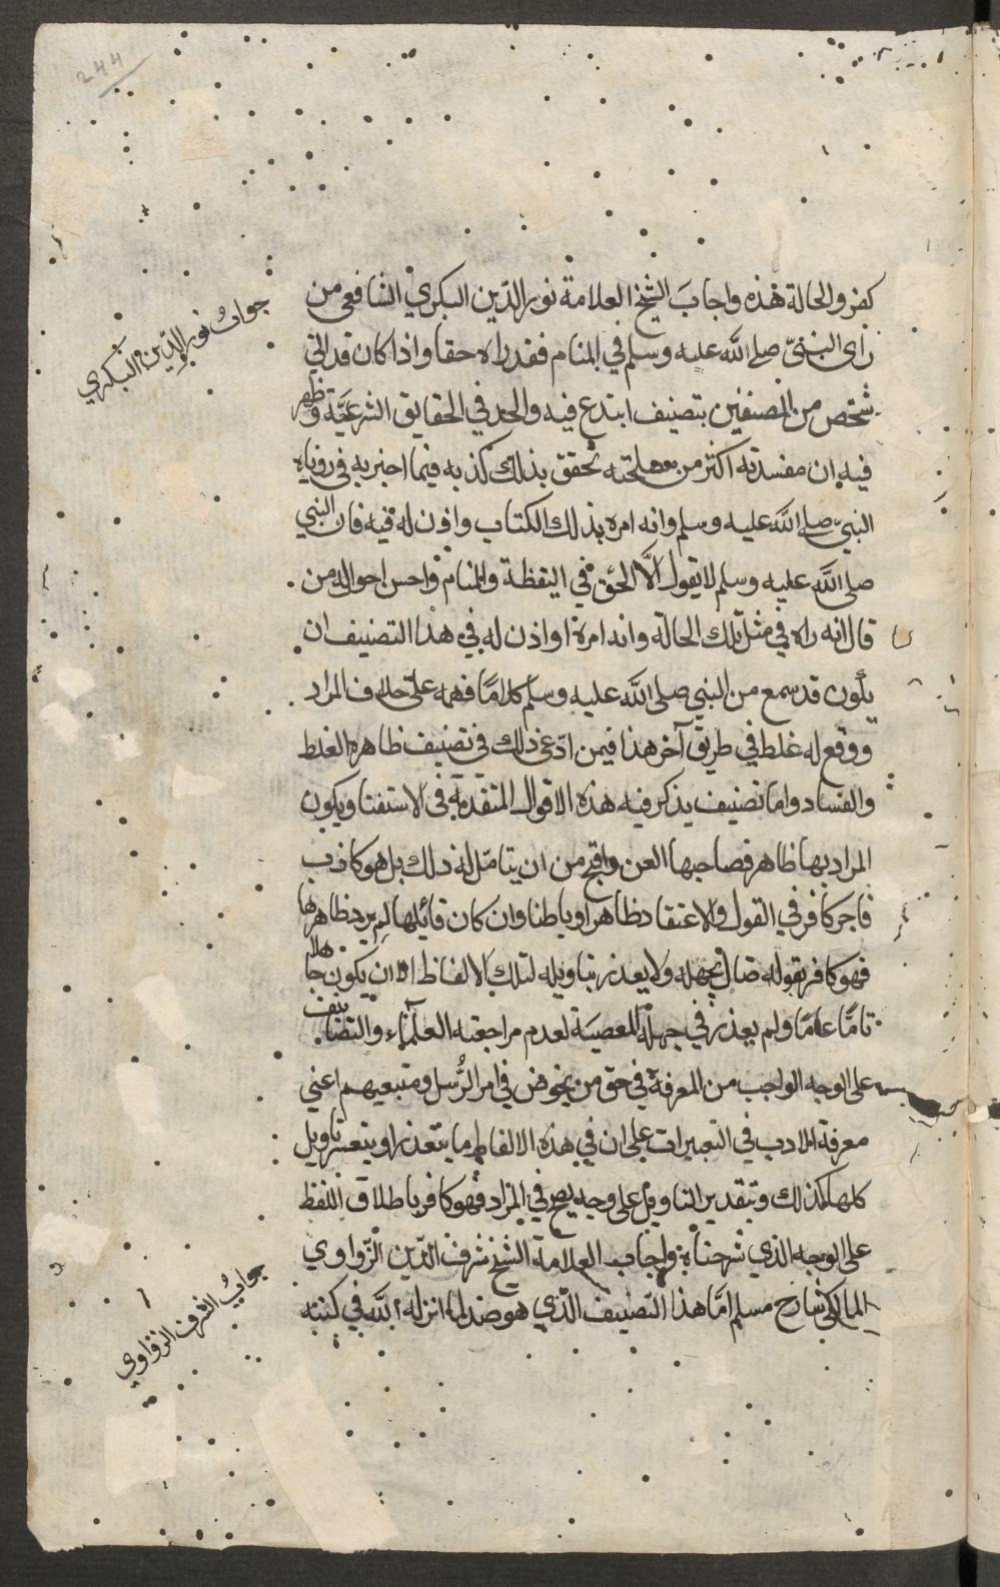 244
كفر والحالة هذه واجاب الشيخ العلامة نور الدين البكري الشافعي من
راى النبي صلى الله عليه وسلم في المنام فقد راه حقا واذا كان قد اتى
شخص من المصنفين بتصنيف ابتدع فيه والحد في الحقايق الشرعية وظهر
فيه ان مفسدته اكثر من مصلحته تحقق بذلك كذبه فيما اخبر به في رؤياه
النبي صلى الله عليه وسلم وانه امره بذلك الكتاب واذن له فيه فان النبي
صلى الله عليه وسلم لا يقول الا الحق في اليقظة والمنام واحسن احواله من
قال انه راه في مثل تلك الحالة وانه امره او اذن له في هذا التصنيف ان
يكون قد سمع من النبي صلى الله عليه وسلم كلاما فهمه على خلاف المراد
ووقع له غلط في طريق آخر هذا فيمن ادعى ذلك في تصنيف ظاهره الغلط
والفساد واما تصنيف يذكر فيه هذه الاقوال المتقدمة في الاستفتا ويكون
المراد بها ظاهر فصاحبها العن واقبح من ان يتامل له ذلك بل هو كاذب
فاجر كافر في القول والاعتقاد ظاهرا وباطنا وان كان قائلها لم يرد ظاهرها
فهو كافر بقوله ضال بجهله ولا يعذر بتاويله لتلك الالفاظ الا ان يكون جاهلا
تاما عاما ولم يعذر في جهله المعصية لعدم مراجعته العلماء والتصانيف
على الوجه الواجب من المعرفة في حق من يخوض في امر الرسل ومتبعيهم اعني
معرفة الادب في التعبيرات على ان في هذه الالفاظ ما يتعذر او يتعسر تاويل
كلها كذلك وبتقدير التاويل على وجه يصح في المراد فهو كافر باطلاق اللفظ
على الوجه الذي شرحناه واجاب العلامة الشيخ شرف الدين الزواوي
المالكي شارح مسلم اما هذا التصنيف الذي هو ضد لما انزله الله في كتبه
جواب نور الدين البكري
جواب الشرف الزواوي